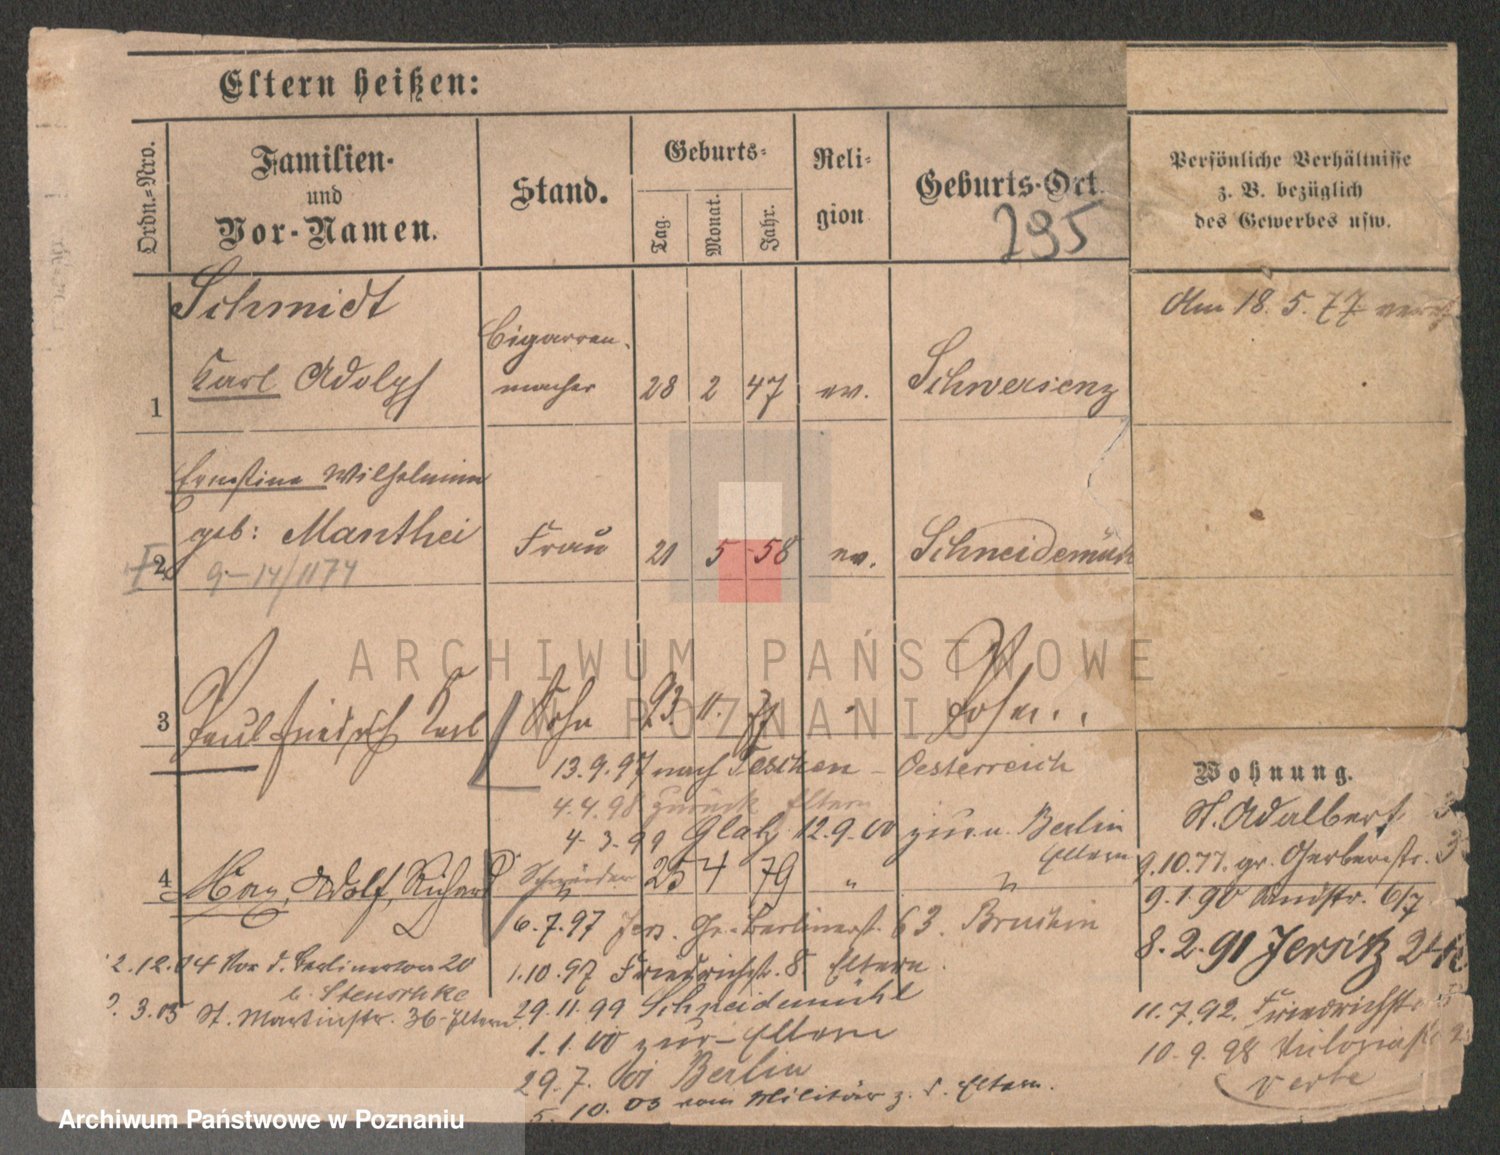 Eltern heißen:
Ordn.-Nro.
Familien-
und
Vor-Namen.
Stand.
Geburts-
Tag.
Monat.
Jahr.
Reli-
gion
Geburts-Ort.
295
Persönliche Verhältnisse
z. B. bezüglich
des Gewerbes usw.
1
Schmidt
Karl Adolph
Cigarren-
macher
28 2 47 ev. Schwersenz
Am 18. 5. 77
2
Ernestine Wilhelmine
geb: Manthei
Frau 21 5 58 ev.
9-14/1174
3 Paul Friedrich Karl
Sohn 11. Posen
13.9.97 nach Teschen - Oesterreich
4.4.98 zurück Eltern
4.3.99 Glatz 12.9.00 Berlin
Eltern
4 Max, Adolf, Richard
25 4 79 " "
6.7.97 Jers. Gr. Berlinerst. 63.
1.10.97 Friedrichstr. 8 Eltern.
29.11.99 Schneidemühl
1.1.00 zur- Eltern
29.7. 01 Berlin
5. 10. 03 vom Militär z. d. Eltern.
12.04 Vor d. Berlinertor 20
b.
3.05 St. Martinstr. 36 - Eltern
Wohnung.
St. Adalbert
9.10.77. gr. Gerberstr.
9.1.90 6/7
8.2.91 Jersitz
11.7.92. Friedrichstr
10.9.98
ARCHIWUM PAŃSTWOWE
W POZNANIU
Archiwum Państwowe w Poznaniu